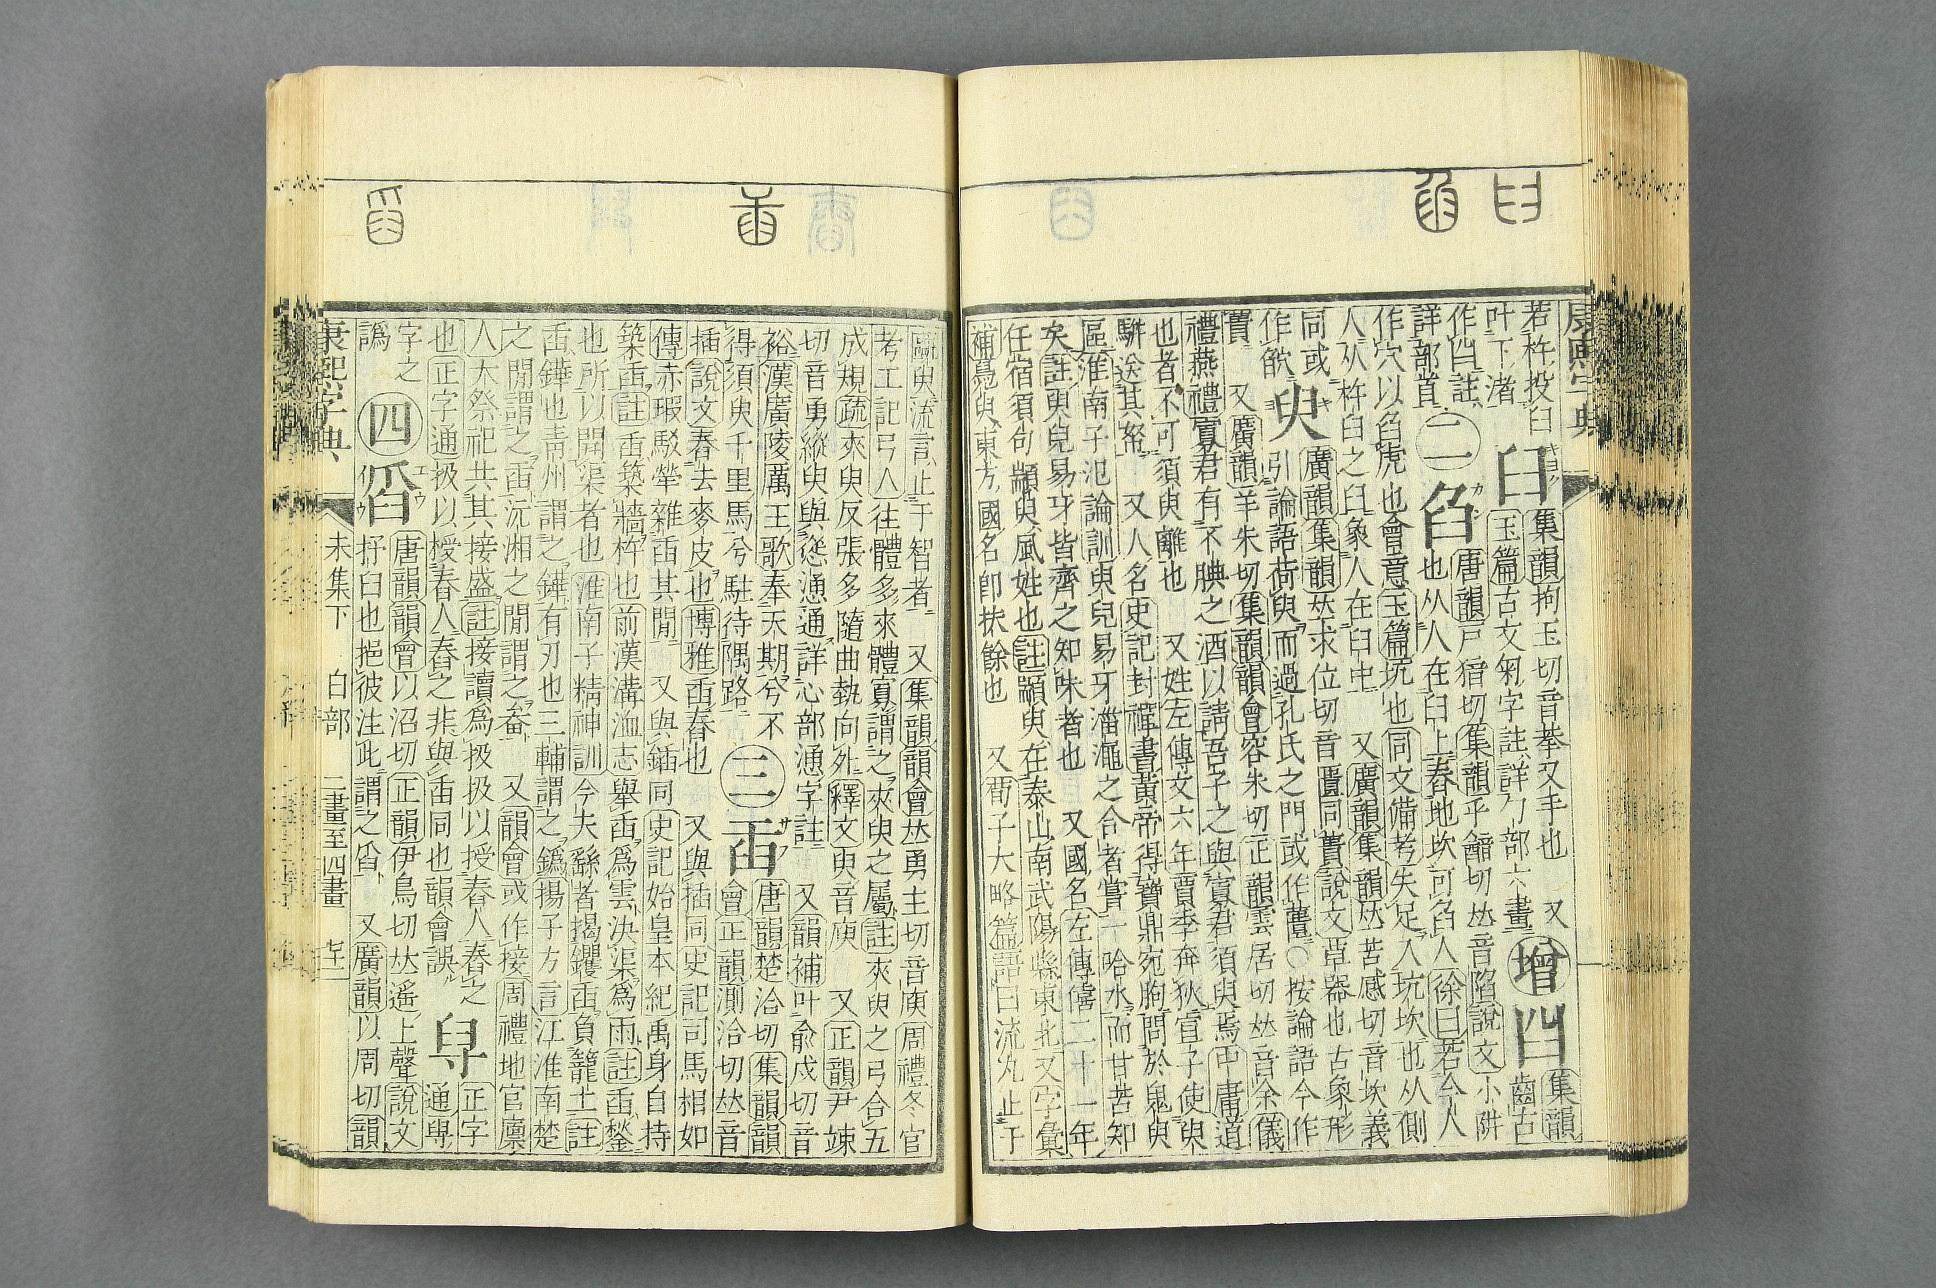 康熙字典
若杵投臼
叶下渚
𦥑
集韻拘玉切音挶叉手也 又
玉篇古文匊字註詳勹部六畫
增
凹
集韻
齒古
作凹註
詳部首
二
臽
唐韻戸猪切集韻乎韽切𠀤音陷說文小阱
也从人在臼上舂地坎可臽人徐曰若今人
作穴以臽虎也會意玉篇坑也同文備考失足入坑坎也从側
人从杵臼之臼象人在臼中 又廣韻集韻𠀤苦感切音坎義
同或
作㰹
臾
廣韻集韻𠀤求位切音匱同蕢說文草器也古象形
引論語荷臾而過孔氏之門或作○按論語今作
蕢 又廣韻羊朱切集韻韻會容朱切正韻雲居切𠀤音余儀
禮燕禮寡君有不腆之酒以請吾子之與寡君須臾焉中庸道
也者不可須臾離也 又姓左傳文六年賈季奔狄宣子使臾
騈送其帑 又人名史記封禪書黃帝得寶鼎宛朐問於鬼臾
區淮南子氾論訓臾兒易牙淄澠之合者嘗一哈水而甘苦知
矣註臾兒易牙皆齊之知味者也 又國名左傳僖二十一年
任宿須句顓臾風姓也註顓臾在泰山南武陽縣東北又字彙
補臾東方國名卽扶餘也 又荀子大略篇語曰流丸止于
甌臾流言止于智者 又集韻韻會𠀤勇主切音庾周禮冬官
考工記弓人往體多來體寡謂之夾臾之屬註夾臾之弓合五
成規疏夾臾反張多隨曲埶向外釋文臾音庾 又正韻尹竦
切音勇縱臾與慫慂通詳心部慂字註 又韻補叶兪戍切音
裕漢廣陵厲王歌奉天期兮不
得須臾千里馬兮駐待隅路
三
臿
唐韻楚洽切集韻韻
會正韻測洽切𠀤音
插說文舂去麥皮也博雅臿舂也 又與插同史記司馬相如
傳赤瑕駁犖雜臿其閒 又與鍤同史記始皇本紀禹身自持
築臿註臿築牆杵也前漢溝洫志舉臿爲雲決渠爲雨註臿鍫
也所以開渠者也淮南子精神訓今夫繇者揭钁臿負籠土註
臿鏵也靑州謂之鏵有刃也三輔謂之鍋揚子方言江淮南楚
之閒謂之臿沅湘之閒謂之畚 又韻會或作接周禮地官廩
人大祭祀共其接盛註接讀爲扱扱以授舂人舂之
也正字通扱以授舂人舂之非與臿同也韻會誤
正字
通
字之
譌
四
舀
唐韻韻會以沼切正韻伊鳥切𠀤遙上聲說文
抒臼也挹彼注此謂之舀 又廣韻以周切韻
康熙字典 未集下 臼部 二畫至四畫